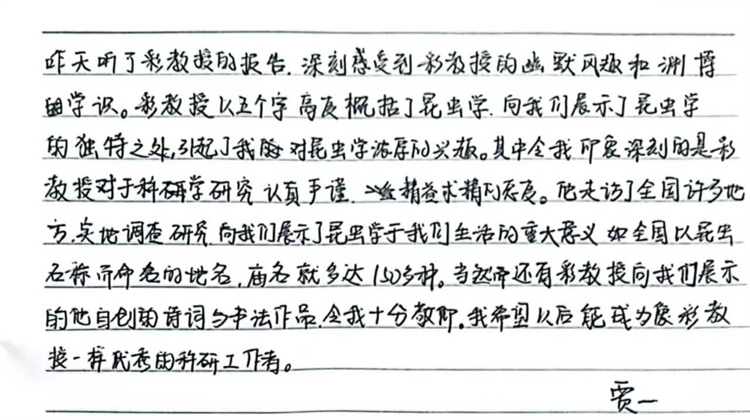 昨天听了彩教授的报告,深刻感受到彩教授的幽默风趣和渊博
的学识。彩教授以五个字高度概括了昆虫学,向我们展示了昆虫学
的独特之处,引起了我对昆虫学浓厚的兴趣。其中令我印象深刻的是彩
教授对于科研学研究认真严谨、精益求精的态度。他走访了全国许多地
方,实地调查研究,向我们展示了昆虫学于我们生活的重大意义,如全国以昆虫
名称而命名的地名,庙名就多达150多种。当然还有彩教授向我们展示
的他自创的诗词与书法作品,令我十分敬仰。我希望以后能成为像彩教
授一样优秀的科研工作者。
贾一